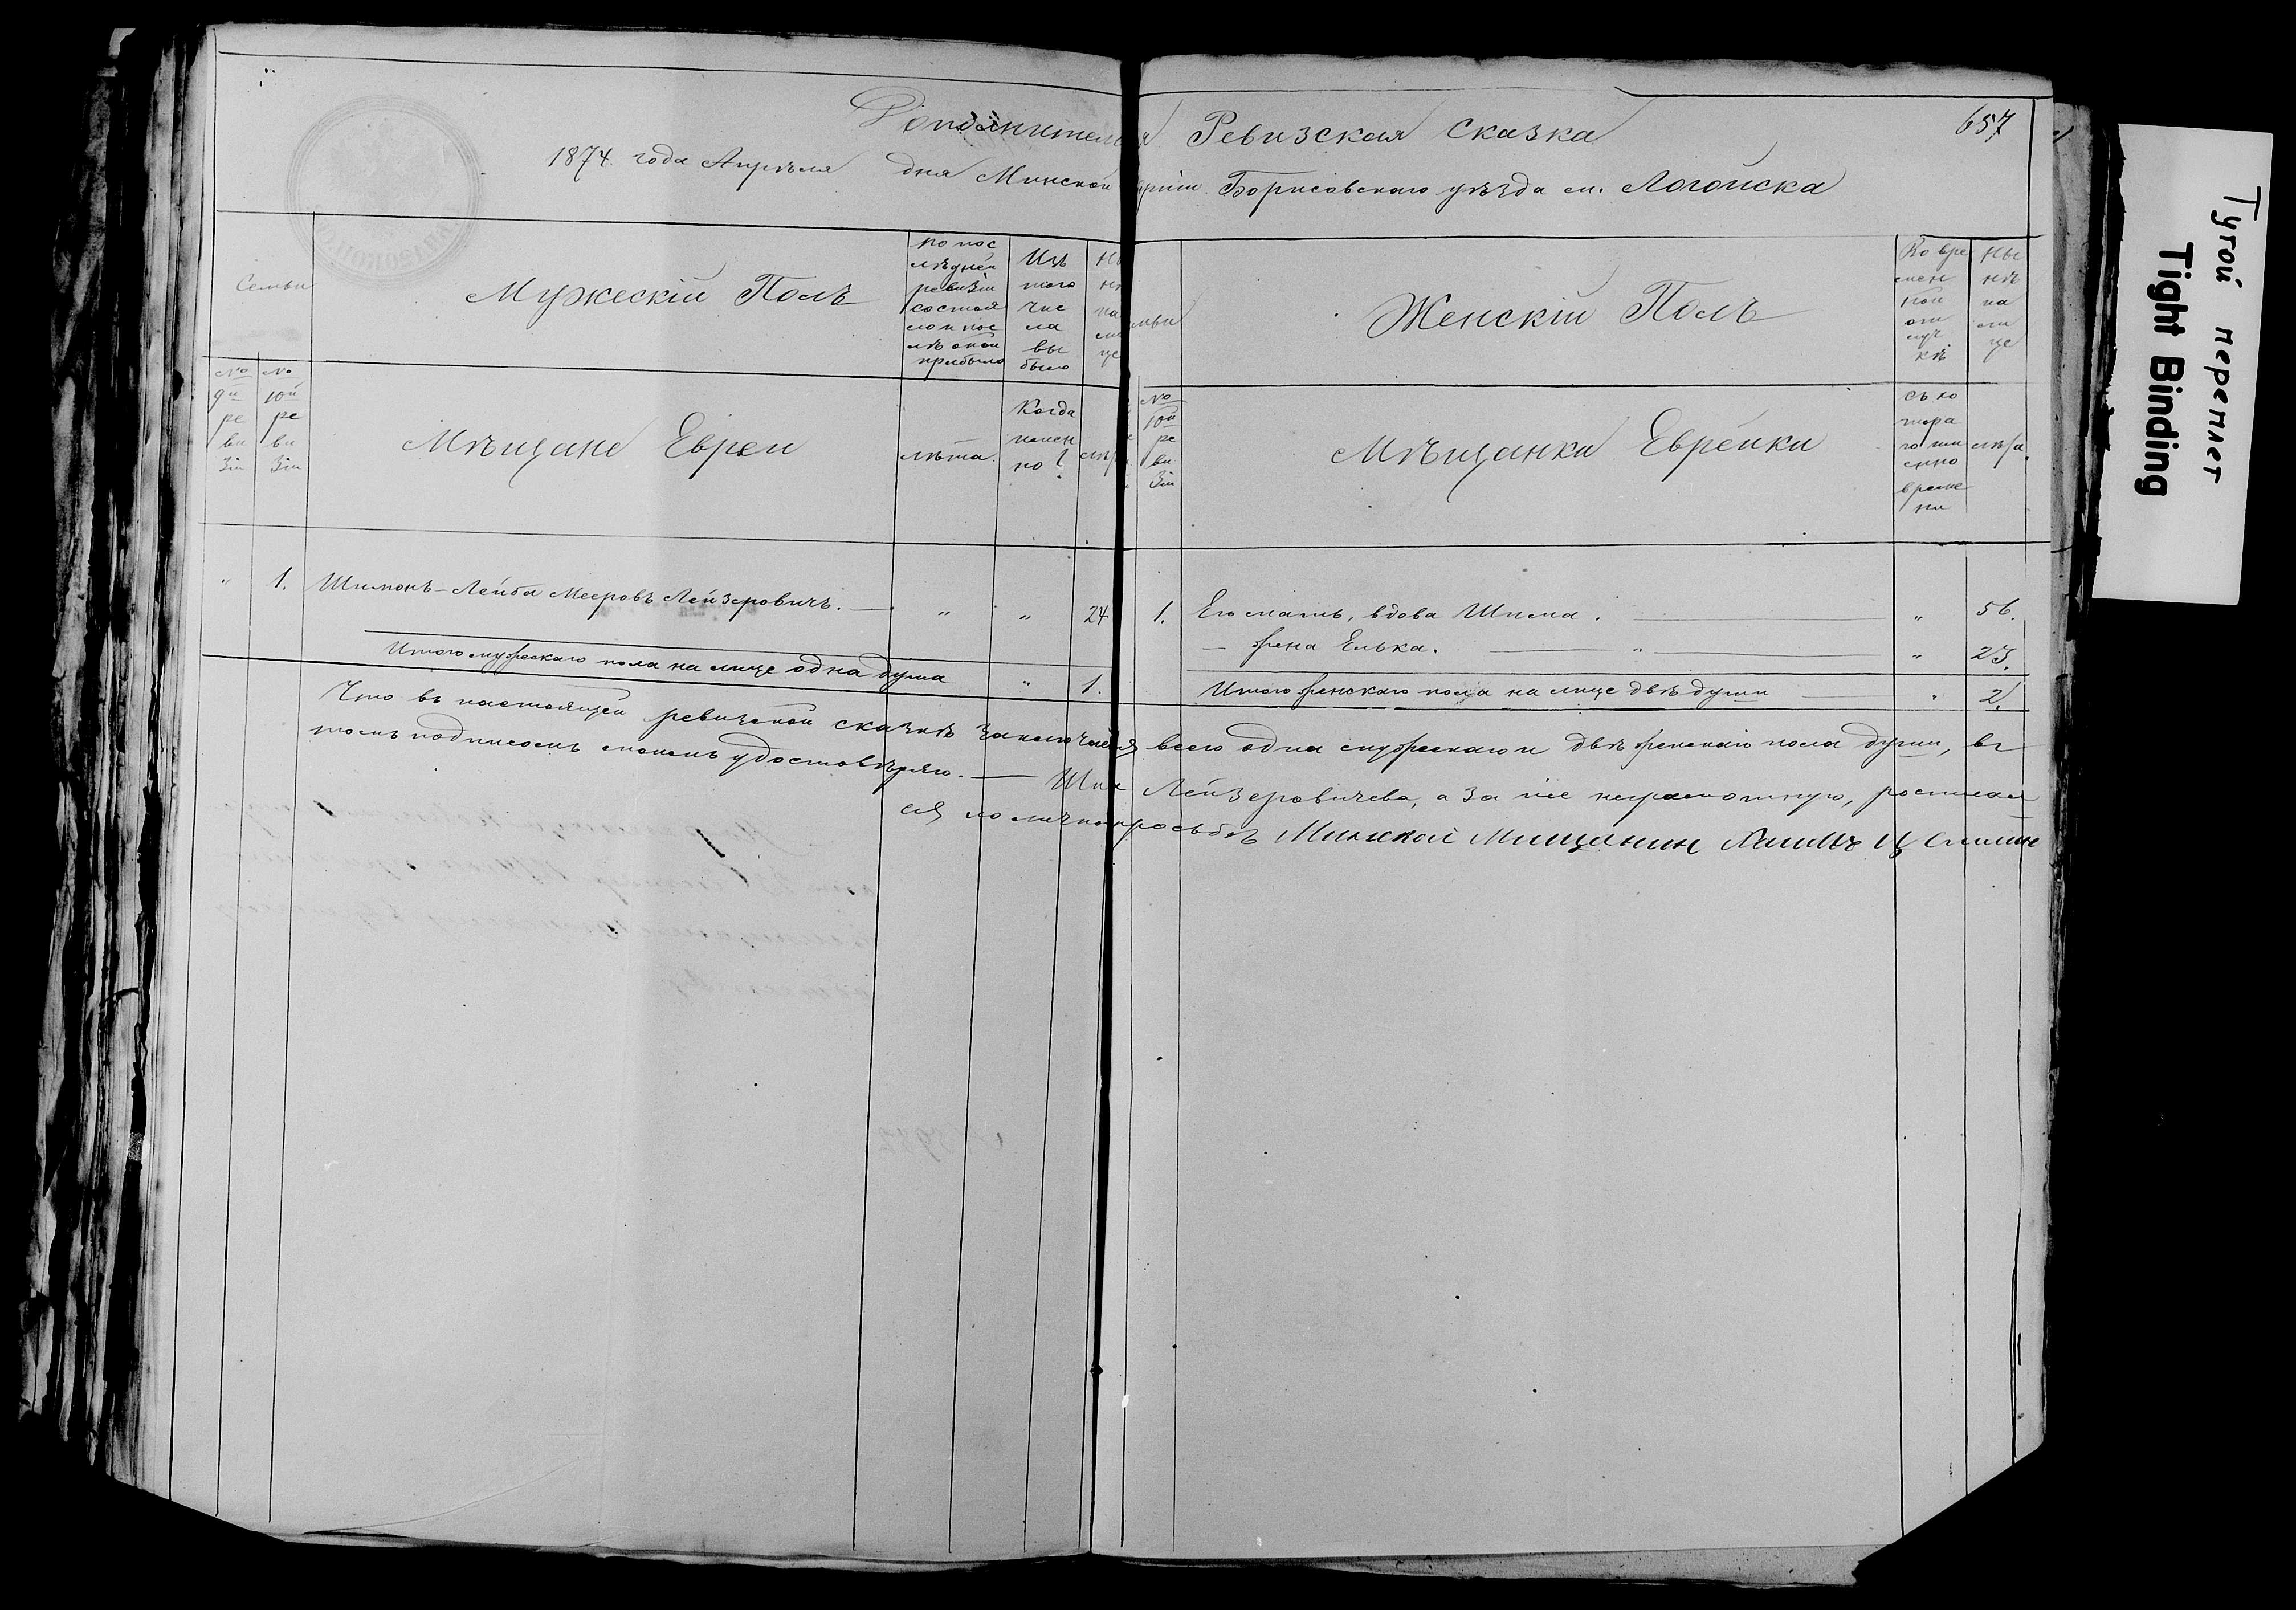 657
Дополнительная Ревизская Сказка
1874 года Апрѣля дня Минской губерніи Борисовскаго уѣзда м. Логойска
Семьи
Мужескій Полъ
по пос
лѣдней
ревизіи
состоя
ло и пос
лѣ оной
прибыло
Изъ
того
чис
ла
вы
было
Женскій Полъ
Во вре
мен
ной
отлуч
кѣ
Ны
нѣ
на
ли
це
№
9й
ре
ви
зіи
№
10й
ре
ви
зіи
Мѣщане Евреи
лѣта
Когда
имен
но?
№
10й
ре
ви
зіи
Мѣщанки Еврейки
съ ко
тора
го им
енно
време
ни
лѣта
" 1. Шимонъ-Лейба Мееровъ Лейзеровичъ. — " " 24
1. Его мать, вдова Шпема. — " 56.
жена Елька. — " — " 23.
Итого мужескаго пола на лице одна душа " 1.
Итого женскаго пола на лице двѣ души " 2.
Что въ настоящей ревизской сказкѣ заключается всего одна мужескаго и двѣ женскаго пола души, въ
томъ подписомъ моимъ удостовѣряю. — Лейзеровичева, а за нее неграмотную, росписал
ся по личной просьбѣ Минской Мищанин
Тугой переплет
Tight Binding